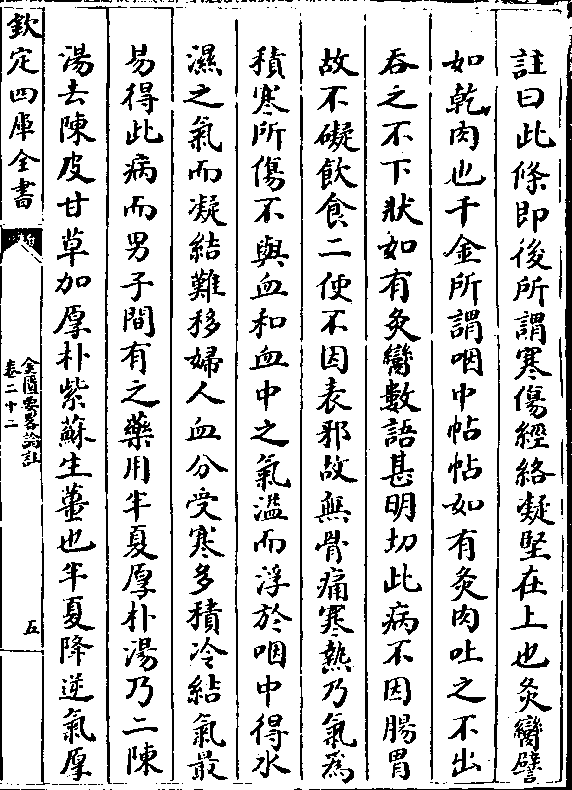 註曰此條即後所謂寒傷經絡凝堅在上也炙臠譬
如乾肉也千金所謂咽中帖帖如有炙肉吐之不出
吞之不下狀如有炙臠數語甚明切此病不因腸胃
故不礙飲食二便不因表邪故無骨痛寒熱乃氣為
積寒所傷不與血和血中之氣溢而浮於咽中得水
濕之氣而凝結難移婦人血分受寒多積冷結氣最
易得此病而男子間有之藥用半夏厚朴湯乃二陳
湯去陳皮甘草加厚朴紫蘇生薑也半夏降逆氣厚
欽定四庫全書
金匱要畧論註
卷二十二
五